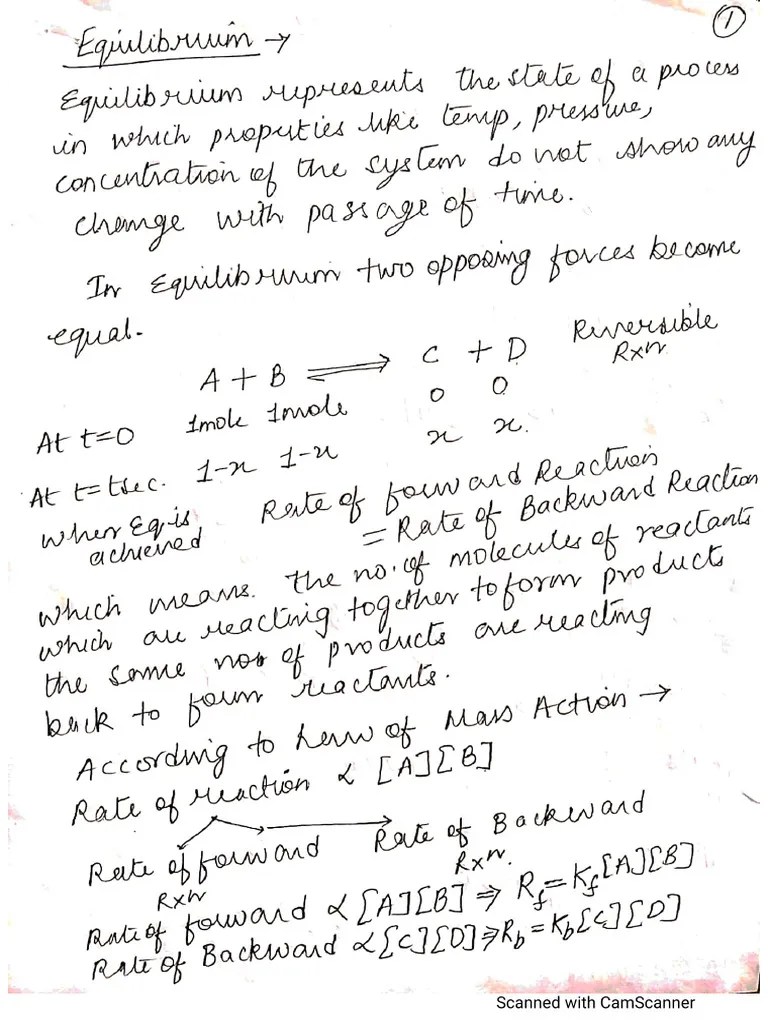 1
Equilibrium →
Equilibrium represents the state of a process
in which properties like temp, pressure,
concentration of the system do not show any
change with passage of time.
In Equilibrium two opposing forces become
equal.
A + B ⇌ C + D Reversible Rxn
At t=0 1mole 1mole 0 0
At t=tsec. 1-x 1-x x x.
When Eq is achieved Rate of forward Reaction
= Rate of Backward Reaction
which means. the no. of molecules of reactants
which are reacting together to form products
the same nos of products are reacting
back to form reactants.
According to Law of Mass Action →
Rate of reaction ∝ [A][B]
Rate of forward Rxn Rate of Backward Rxn.
Rate of forward ∝ [A][B] ⇒ Rf = Kf[A][B]
Rate of Backward ∝ [C][D] ⇒ Rb = Kb[C][D]
Scanned with CamScanner